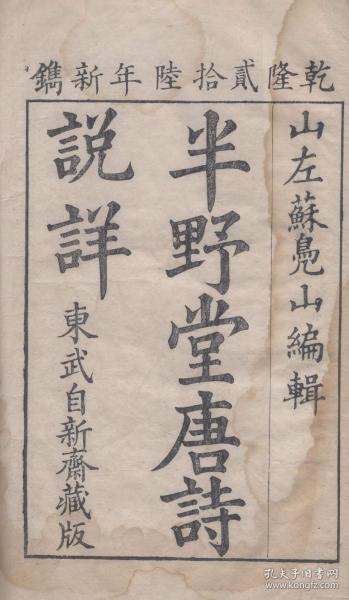 乾隆貳拾陸年新鐫
山左蘇鳧山編輯
半野堂唐詩
説詳
東武自新齋藏版
孔夫子旧书网